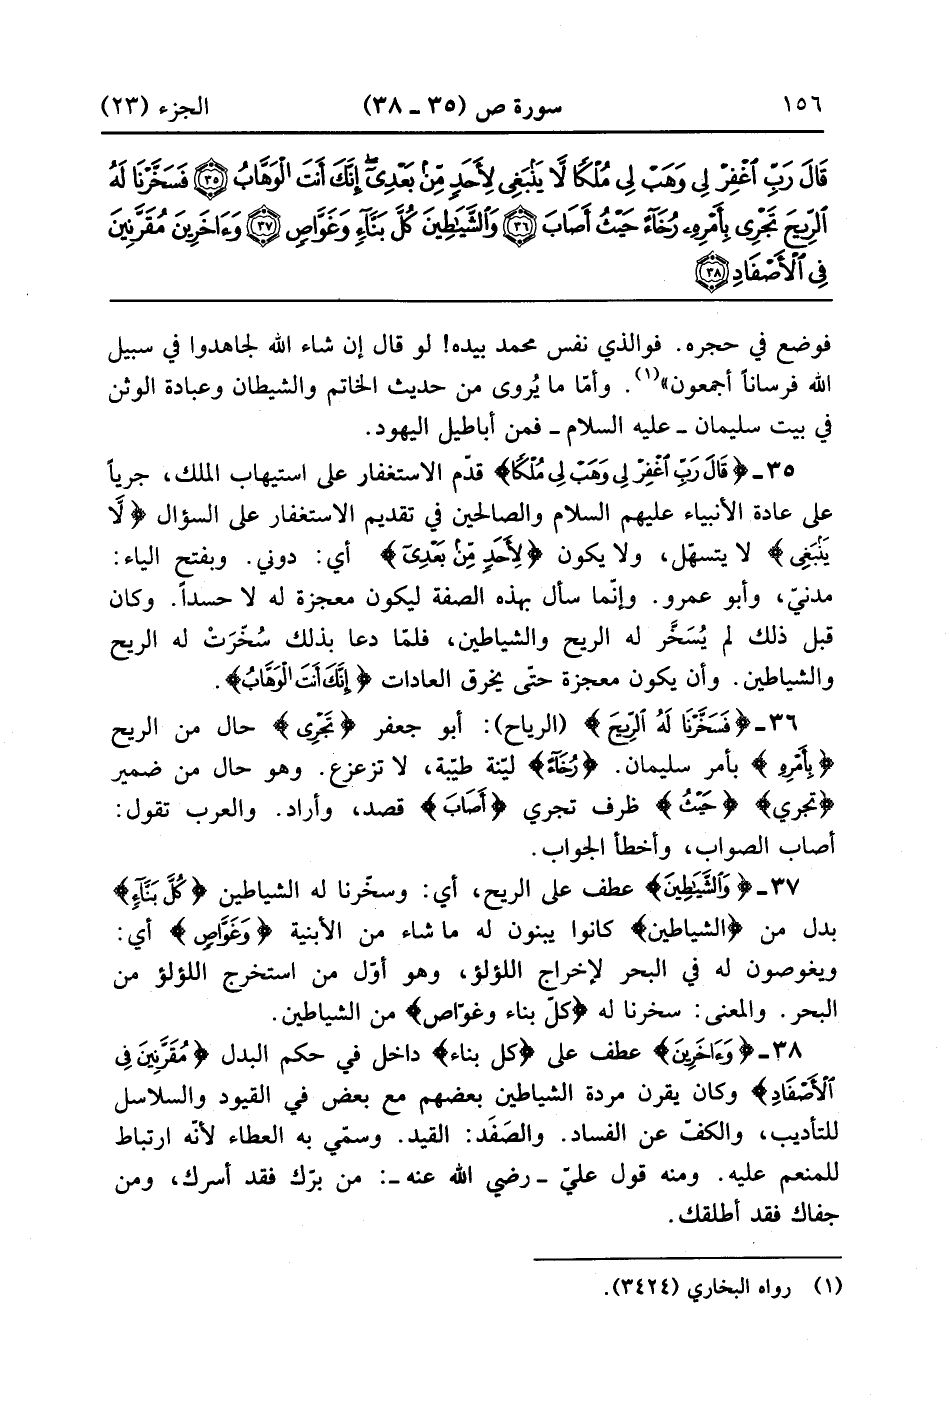 ١٥٦ سورة ص (٣٥ - ٣٨) الجزء (٢٣)
قَالَ رَبِّ ٱغۡفِرۡ لِي وَهَبۡ لِي مُلۡكٗا لَّا يَنۢبَغِي لِأَحَدٖ مِّنۢ بَعۡدِيٓۖ إِنَّكَ أَنتَ ٱلۡوَهَّابُ ٣٥ فَسَخَّرۡنَا لَهُ
ٱلرِّيحَ تَجۡرِي بِأَمۡرِهِۦ رُخَآءً حَيۡثُ أَصَابَ ٣٦ وَٱلشَّيَٰطِينَ كُلَّ بَنَّآءٖ وَغَوَّاصٖ ٣٧ وَءَاخَرِينَ مُقَرَّنِينَ
فِي ٱلۡأَصۡفَادِ ٣٨
فوضع في حجره. فوالذي نفس محمد بيده! لو قال إن شاء الله لجاهدوا في سبيل
الله فرساناً أجمعون»(١). وأمّا ما يُروى من حديث الخاتم والشيطان وعبادة الوثن
في بيت سليمان - عليه السلام - فمن أباطيل اليهود.
٣٥ - ﴿قَالَ رَبِّ ٱغۡفِرۡ لِي وَهَبۡ لِي مُلۡكٗا﴾ قدّم الاستغفار على استيهاب الملك، جرياً
على عادة الأنبياء عليهم السلام والصالحين في تقديم الاستغفار على السؤال ﴿لَّا
يَنۢبَغِي﴾ لا يتسهّل، ولا يكون ﴿لِأَحَدٖ مِّنۢ بَعۡدِيٓ﴾ أي: دوني. وبفتح الياء:
مدنيّ، وأبو عمرو. وإنّما سأل بهذه الصفة ليكون معجزة له لا حسداً. وكان
قبل ذلك لم يُسَخَّر له الريح والشياطين، فلمّا دعا بذلك سُخّرَتْ له الريح
والشياطين. وأن يكون معجزة حتّى يخرق العادات ﴿إِنَّكَ أَنتَ ٱلۡوَهَّابُ﴾.
٣٦ - ﴿فَسَخَّرۡنَا لَهُ ٱلرِّيحَ﴾ (الرياح): أبو جعفر ﴿تَجۡرِي﴾ حال من الريح
﴿بِأَمۡرِهِۦ﴾ بأمر سليمان. ﴿رُخَآءً﴾ ليّنة طيّبة، لا تزعزع. وهو حال من ضمير
﴿تجري﴾ ﴿حَيۡثُ﴾ ظرف تجري ﴿أَصَابَ﴾ قصد، وأراد. والعرب تقول:
أصاب الصواب، وأخطأ الجواب.
٣٧ - ﴿وَٱلشَّيَٰطِينَ﴾ عطف على الريح، أي: وسخّرنا له الشياطين ﴿كُلَّ بَنَّآءٖ﴾
بدل من ﴿الشياطين﴾ كانوا يبنون له ما شاء من الأبنية ﴿وَغَوَّاصٖ﴾ أي:
ويغوصون له في البحر لإخراج اللؤلؤ، وهو أوّل من استخرج اللؤلؤ من
البحر. والمعنى: سخرنا له ﴿كلّ بناء وغوّاص﴾ من الشياطين.
٣٨ - ﴿وَءَاخَرِينَ﴾ عطف على ﴿كل بناء﴾ داخل في حكم البدل ﴿مُقَرَّنِينَ فِي
ٱلۡأَصۡفَادِ﴾ وكان يقرن مردة الشياطين بعضهم مع بعض في القيود والسلاسل
للتأديب، والكفّ عن الفساد. والصَفَد: القيد. وسمّي به العطاء لأنّه ارتباط
للمنعم عليه. ومنه قول عليّ - رضي الله عنه -: من برّك فقد أسرك، ومن
جفاك فقد أطلقك.
(١) رواه البخاري (٣٤٢٤).